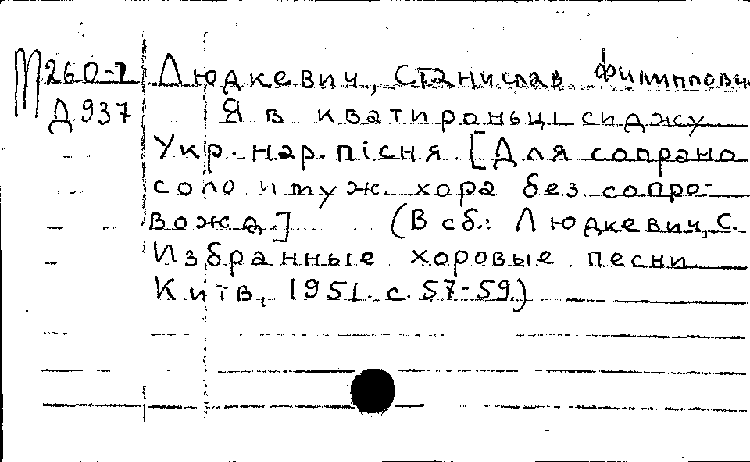 М260-7 Людкевич, Станислав Филиппович
Д937 Я в кватироньці сиджу
Укр. нар. пісня [Для сопрано
соло и муж. хора без сопро-
вожд.] (В сб.: Людкевич, С.
Избранные хоровые песни
Київ, 1951. с. 57-59)